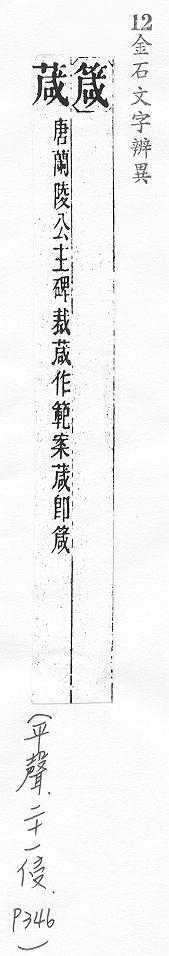 12金石文字辨異
〔箴〕
葴 唐蘭陵公主碑裁葴作範案葴即箴
(平聲.二十一侵.P346)